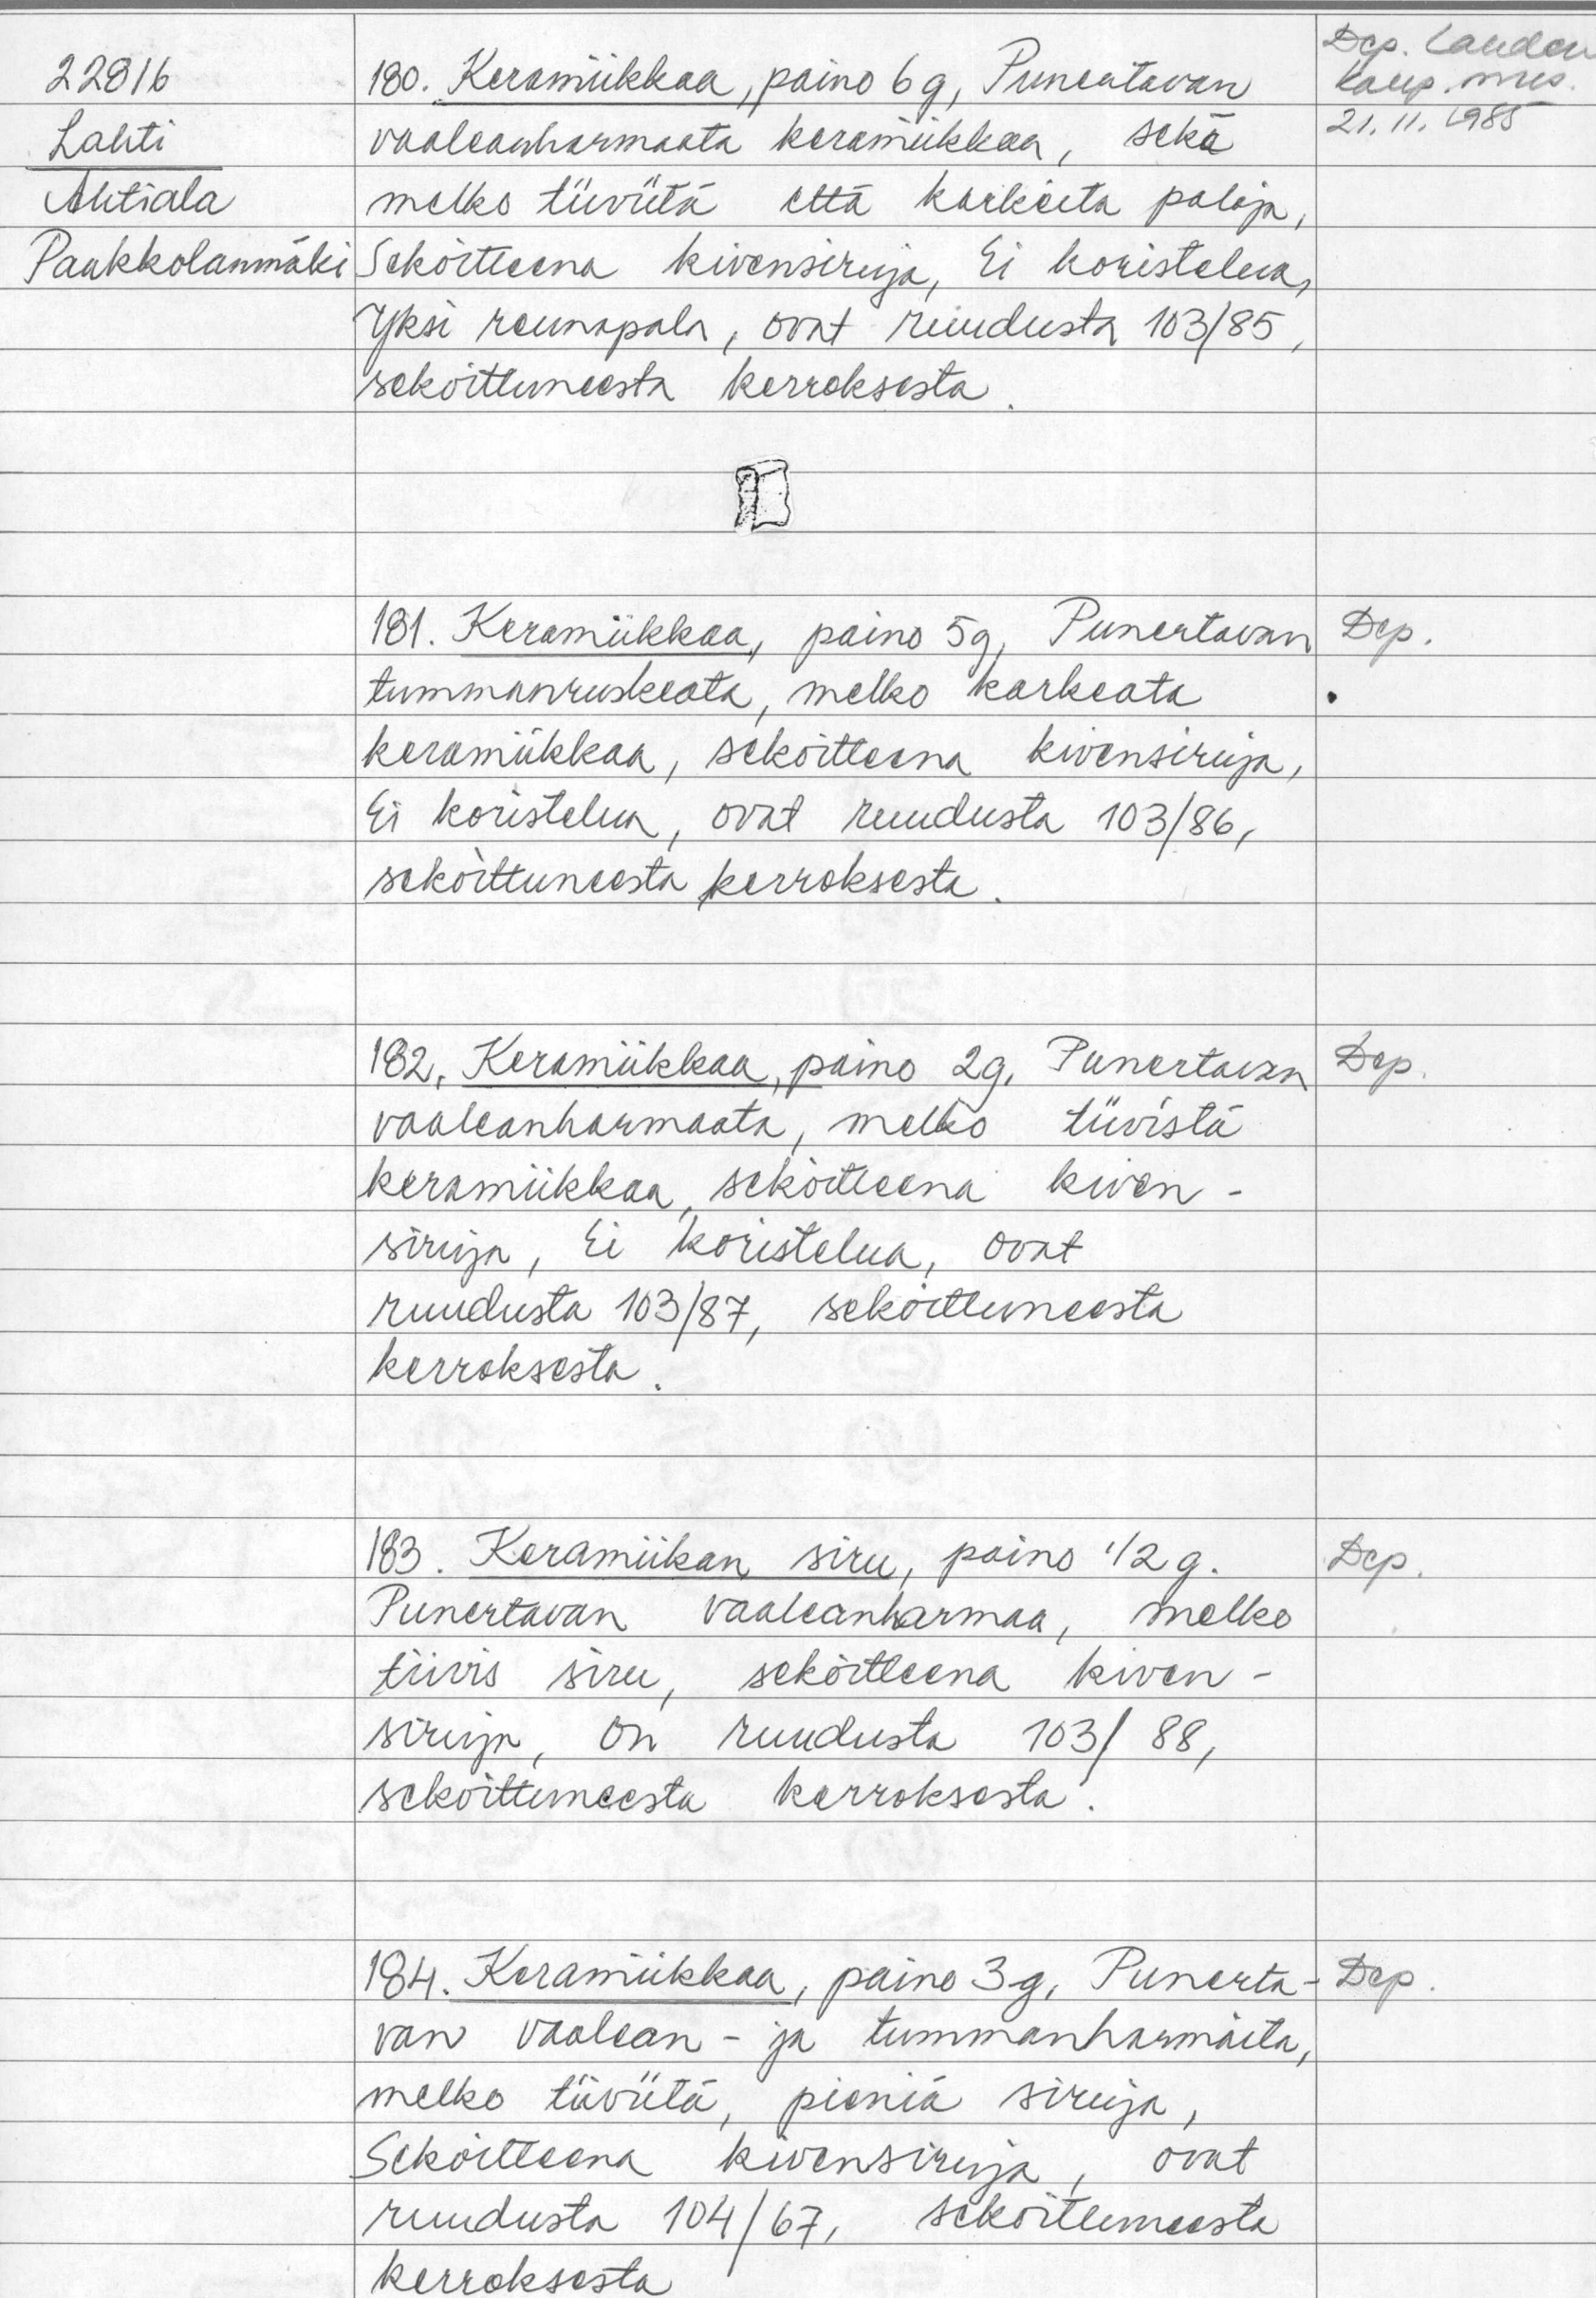 22816
Lahti
Ahtiala
Paakkolanmäki
180. Keramiikkaa, paino 6 g, Punertavan
vaaleanharmaata keramiikkaa, sekä
melko tiiviitä että karkeita paloja,
Sekoitteena kivensiruja, Ei koristelua,
Yksi reunapala, ovat ruudusta 103/85,
sekoittuneesta kerroksesta.
Dep. Lahden
kaup. mus.
21.11.1985
181. Keramiikkaa, paino 5 g, Punertavan
tummanruskeata, melko karkeata
keramiikkaa, sekoitteena kivensiruja,
Ei koristelua, ovat ruudusta 103/86,
sekoittuneesta kerroksesta.
Dep.
182. Keramiikkaa, paino 2 g, Punertavan
vaaleanharmaata, melko tiivistä
keramiikkaa, sekoitteena kiven-
siruja, Ei koristelua, ovat
ruudusta 103/87, sekoittuneesta
kerroksesta.
Dep.
183. Keramiikan siru, paino 1/2 g.
Punertavan vaaleanharmaa, melko
tiivis siru, sekoitteena kiven-
siruja, on ruudusta 103/88,
sekoittuneesta kerroksesta.
Dep.
184. Keramiikkaa, paino 3 g, Punerta-
van vaalean- ja tummanharmaita,
melko tiiviitä, pieniä siruja,
Sekoitteena kivensiruja, ovat
ruudusta 104/67, sekoittuneesta
kerroksesta
Dep.